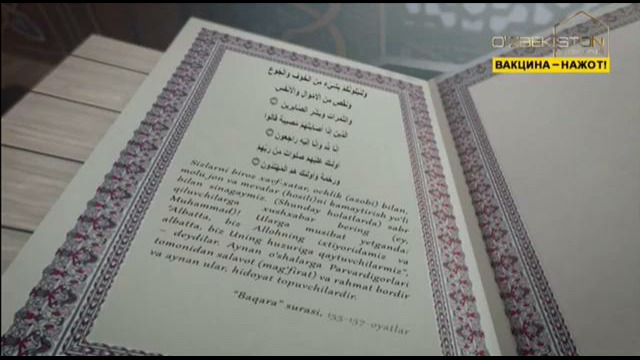 O'ZBEKISTON
ВАКЦИНА – НАЖОТ!
ولنبلونكم بشيء من الخوف والجوع
ونقص من الأموال والأنفس
والثمرات وبشر الصابرين
الذين إذا أصابتهم مصيبة قالوا
إنا لله وإنا إليه راجعون
أولئك عليهم صلوات من ربهم
ورحمة وأولئك هم المهتدون
Sizlarni biroz xavf-xatar, ochlik (azobi) bilan,
molu jon va mevalar (hosili)ni kamaytirish yo'li
bilan sinagaymiz. (Shunday holatlarda) sabr
qiluvchilarga xushxabar bering (ey,
Muhammad)! Ularga musibat yetganda;
"Albatta, biz Allohning (ixtiyori)damiz va
albatta, biz Uning huzuriga qaytuvchilarmiz",
– deydilar. Aynan o'shalarga Parvardigorlari
tomonidan salavot (mag'firat) va rahmat bordir
va aynan ular, hidoyat topuvchilardir.
"Baqara" surasi, 155-157-oyatlar